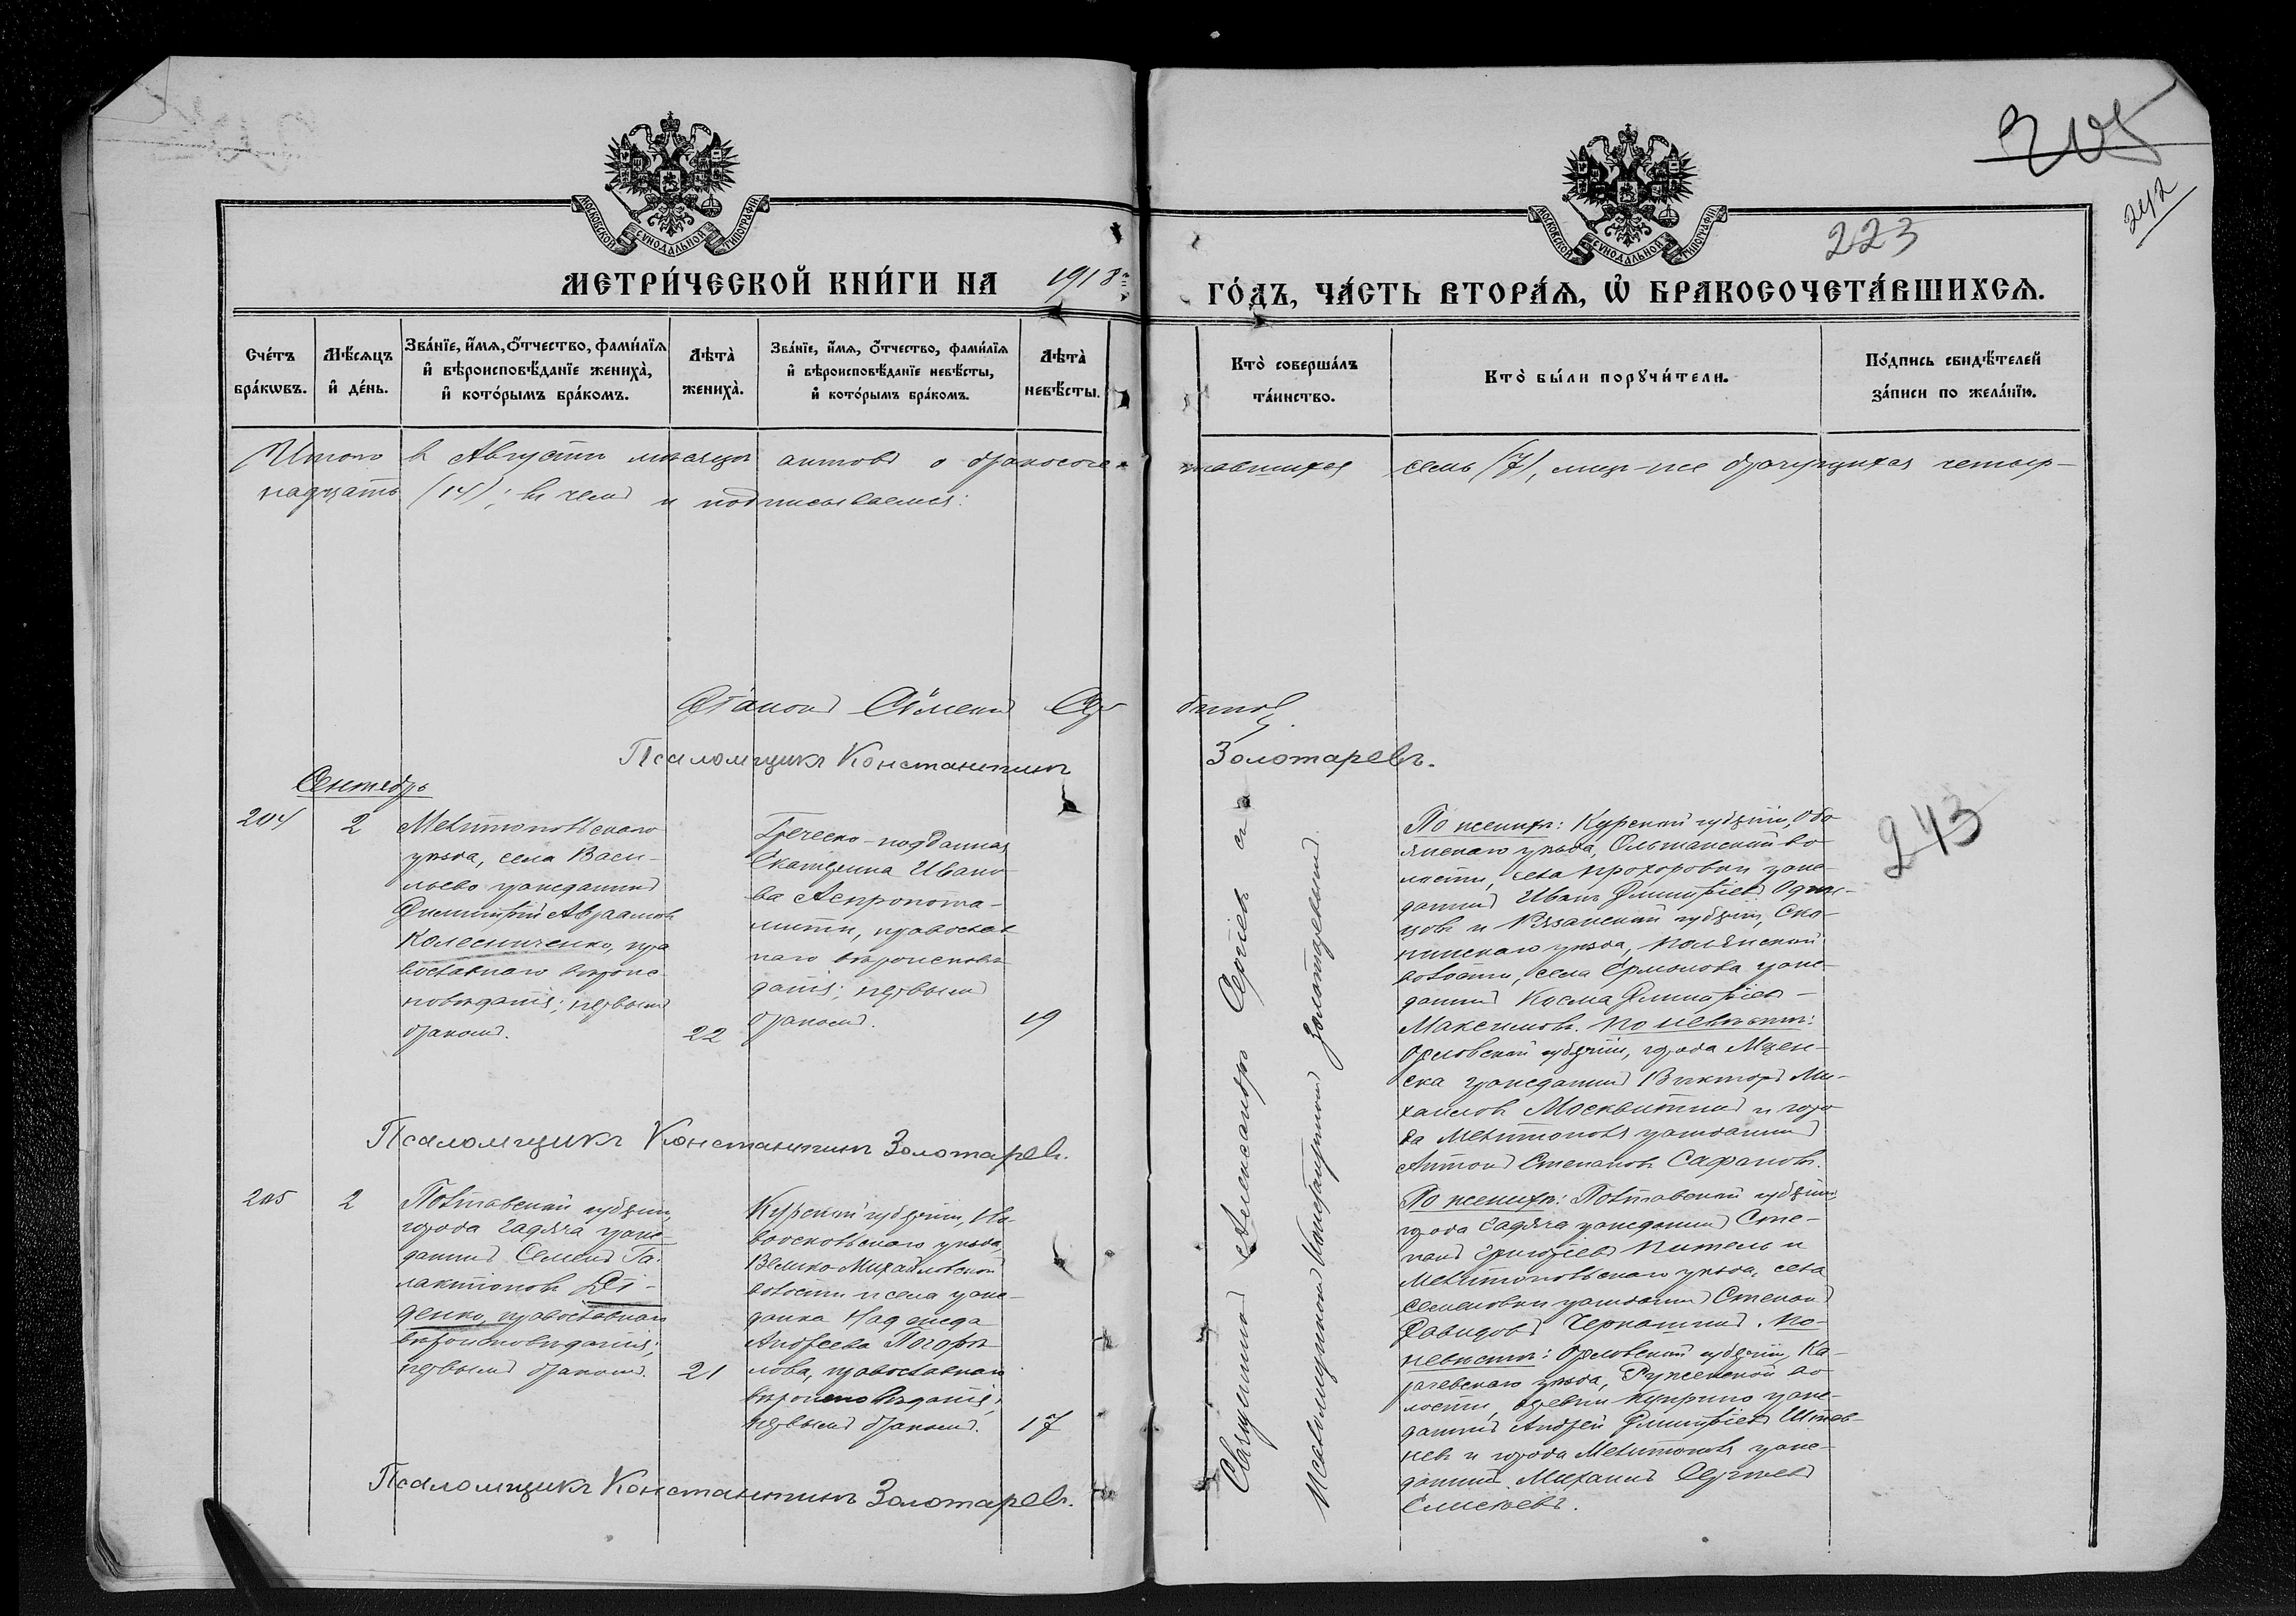 205
242
223
МОСКОВСКОЙ СУНОДАЛЬНОЙ ТИПОГРАФІИ
МОСКОВСКОЙ СУНОДАЛЬНОЙ ТИПОГРАФІИ
МЕТРИ́ЧЕСКОЙ КНИ́ГИ НА 1918 ГО́ДЪ, ЧА́СТЬ ВТОРА́Ѧ, Ѽ БРАКОСОЧЕТА́ВШИХСѦ.
Сче́тъ бра́кωвъ.
Мѣ́сѧцъ и҆ де́нь.
Зва́нїе, и҆́мѧ, ѻ҆́тчество, фами́лїѧ
и҆ вѣроисповѣ́данїе жениха̀,
и҆ кото́рымъ бра́комъ.
Лѣта̀ жениха̀.
Зва́нїе, и҆́мѧ, ѻ҆́тчество, фами́лїѧ
и҆ вѣроисповѣ́данїе невѣ́сты,
и҆ кото́рымъ бра́комъ.
Лѣта̀ невѣ́сты.
Кто̀ соверша́лъ
та́инство.
Кто̀ бы́ли порꙋчи́тели.
По́дпись свидѣ́телей
за́писи по жела́нїю.
Итого в Августе месяце актов о бракосоче-тавшихся семь (7), лиц-же брачущихся четыр-
надцать (14); в чем и подписываемся:
Псаломщикъ Константинъ Золотаревъ.
Сентябрь
204
2
Мелитопольскаго
уезда, села Васи-
льево гражданин
Димитрий Авраамов
Колесниченко, пра
вославнаго вероис-
поведания; первым
браком.
22
Греческо-подданная
Екатерина Ивано
ва Аспропота-
мити, православ
наго вероиспове
дания; первым
браком.
19
Священник Александр Сергиев и
Псаломщик Константин Золотарев
По женихе: Курской губернии, Обо
янскаго уезда, Ольшанской во
лости, села Прохоровки граж
данин Иван Димитриев
и Рязанской губернии, Ско-
пинскаго уезда,
волости, села Ермолова граж-
данин Косма Димитриев
Максимов. По невесте:
Орловской губернии, города Мцен-
ска гражданин Виктор Ми-
хаилов Москвитин и горо
да Мелитополя гражданин
Антон Степанов Сафонов.
243
Псаломщикъ Константинъ Золотаревъ.
205
2
Полтавской губернии,
города Гадяча граж
данин Семен Га-
лактионов Дi-
денко, православнаго
вероисповедания;
первым браком.
21
Курской губернии, Но-
вооскольскаго уезда,
Велико-Михайловской
волости и села граж-
данка Надежда
Андреева Погоре
лова, православнаго
вероисповедания;
первым браком.
17
По женихе: Полтавской губернии
города Гадяча гражданин Сте-
пан Григориев и
Мелитопольскаго уезда, села
Семеновки гражданин Степан
Давидов Черкашин. По
невесте: Орловской губернии, Ка-
рачевскаго уезда, во
лости, деревни Куприно граж-
данин Андрей Димитриев
и города Мелитополя граж-
данин Михаил Сергиев
Елисеев.
Псаломщикъ Константинъ Золотаревъ.